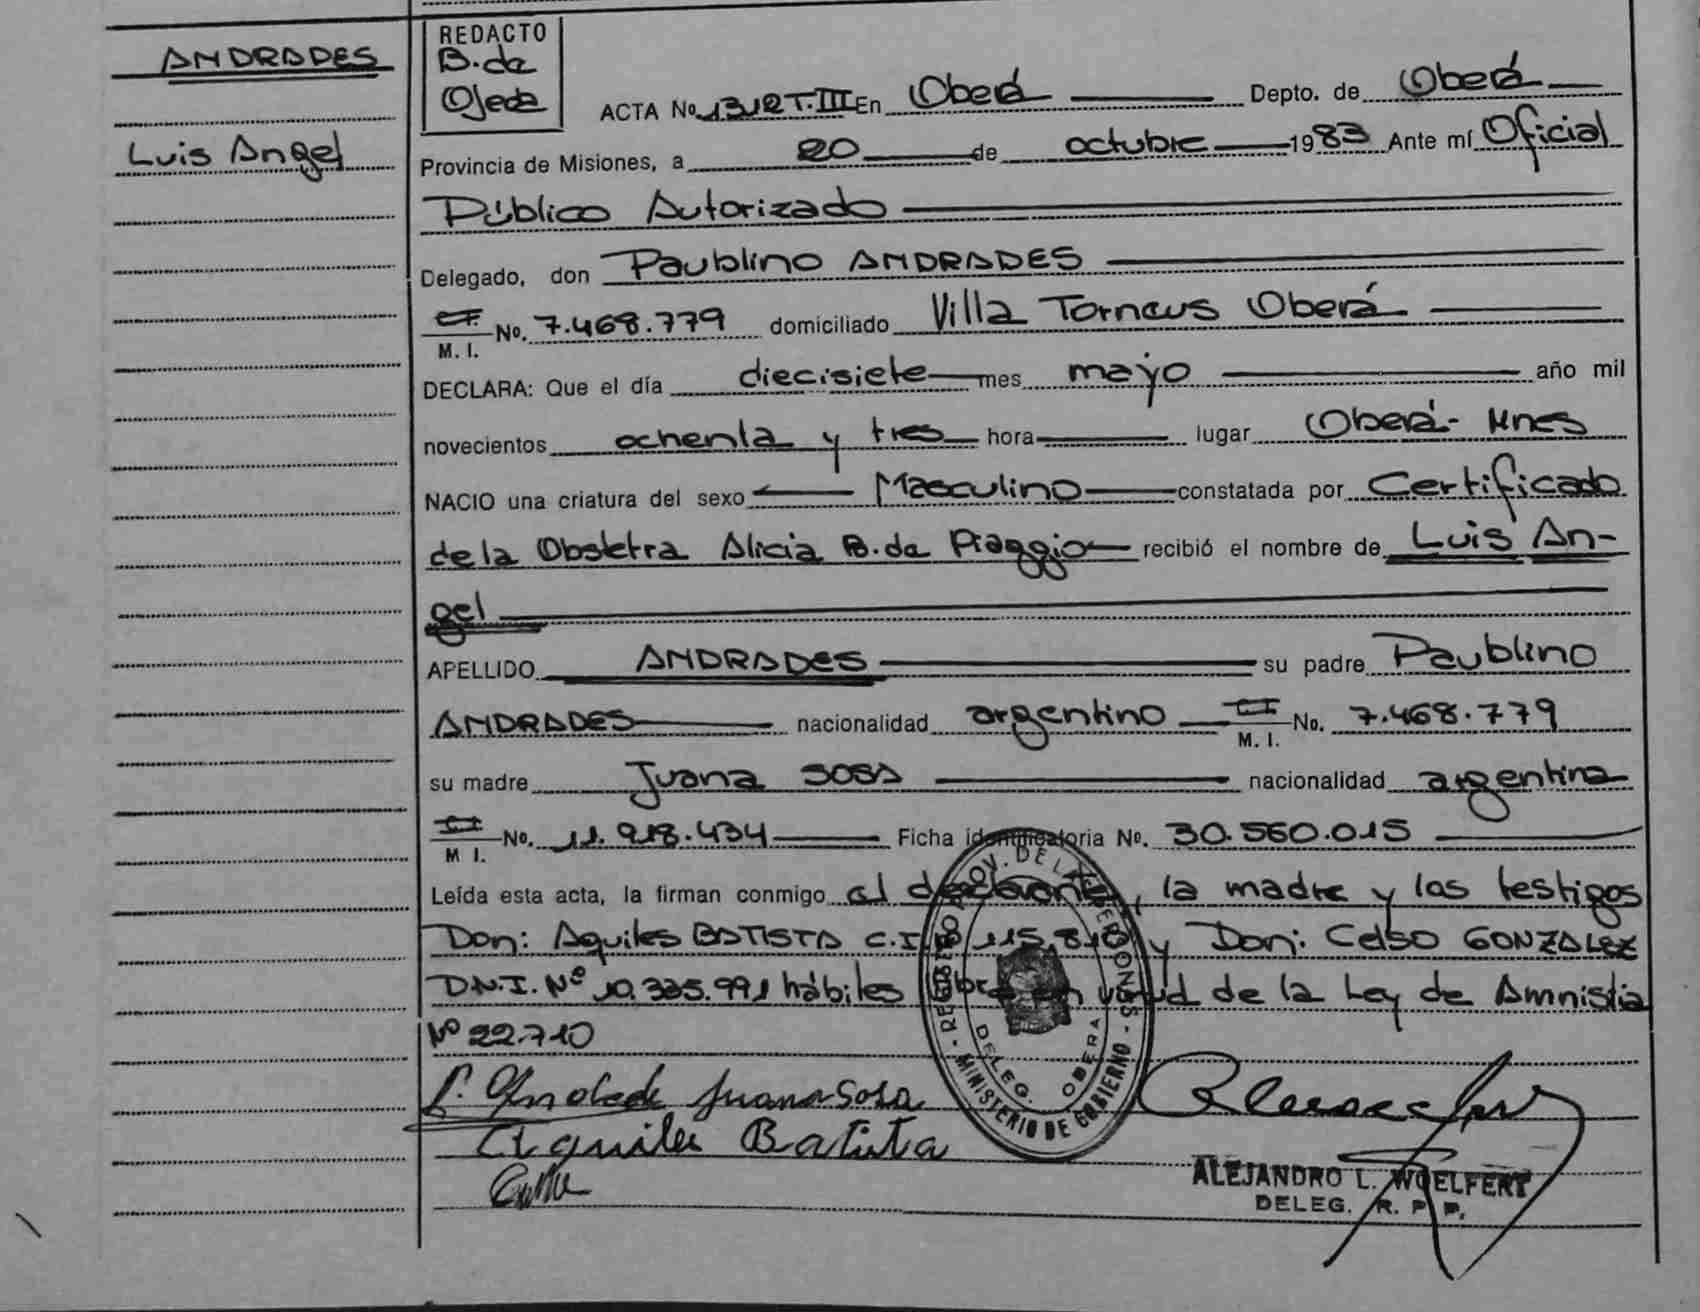 ANDRADES
Luis Angel
REDACTO
B. de
Ojeda
ACTA No. 1312 T.III En Oberá Depto. de Oberá
Provincia de Misiones, a 20 de octubre 1983 Ante mí Oficial
Público Autorizado
Delegado, don Paublino ANDRADES
M. I. No. 7.468.779 domiciliado Villa Torneus Oberá
DECLARA: Que el día diecisiete mes mayo año mil
novecientos ochenta y tres hora lugar Oberá- Mnes
NACIO una criatura del sexo Masculino constatada por Certificado
de la Obstetra Alicia B. de Piaggio recibió el nombre de Luis An-
gel
APELLIDO ANDRADES su padre Paublino
ANDRADES nacionalidad argentino M. I. No. 7.468.779
su madre Juana SOSA nacionalidad argentina
M I. No. 11.918.434 Ficha identificatoria No. 30.560.015
Leída esta acta, la firman conmigo el declarante, la madre y los testigos
Don: Aquiles BATISTA C.I. Nº 115.810 y Don: Celso GONZALEZ
D.N.I. Nº 10.335.991 hábiles labrada en virtud de la Ley de Amnistia
Nº 22.710
P. Andrade Juana Sosa
Aquiles Batista
REGISTRO PROV. DE LAS PERSONAS - MINISTERIO DE GOBIERNO -
DELEG. OBERA
ALEJANDRO L. WOELFERT
DELEG. R. P. P.